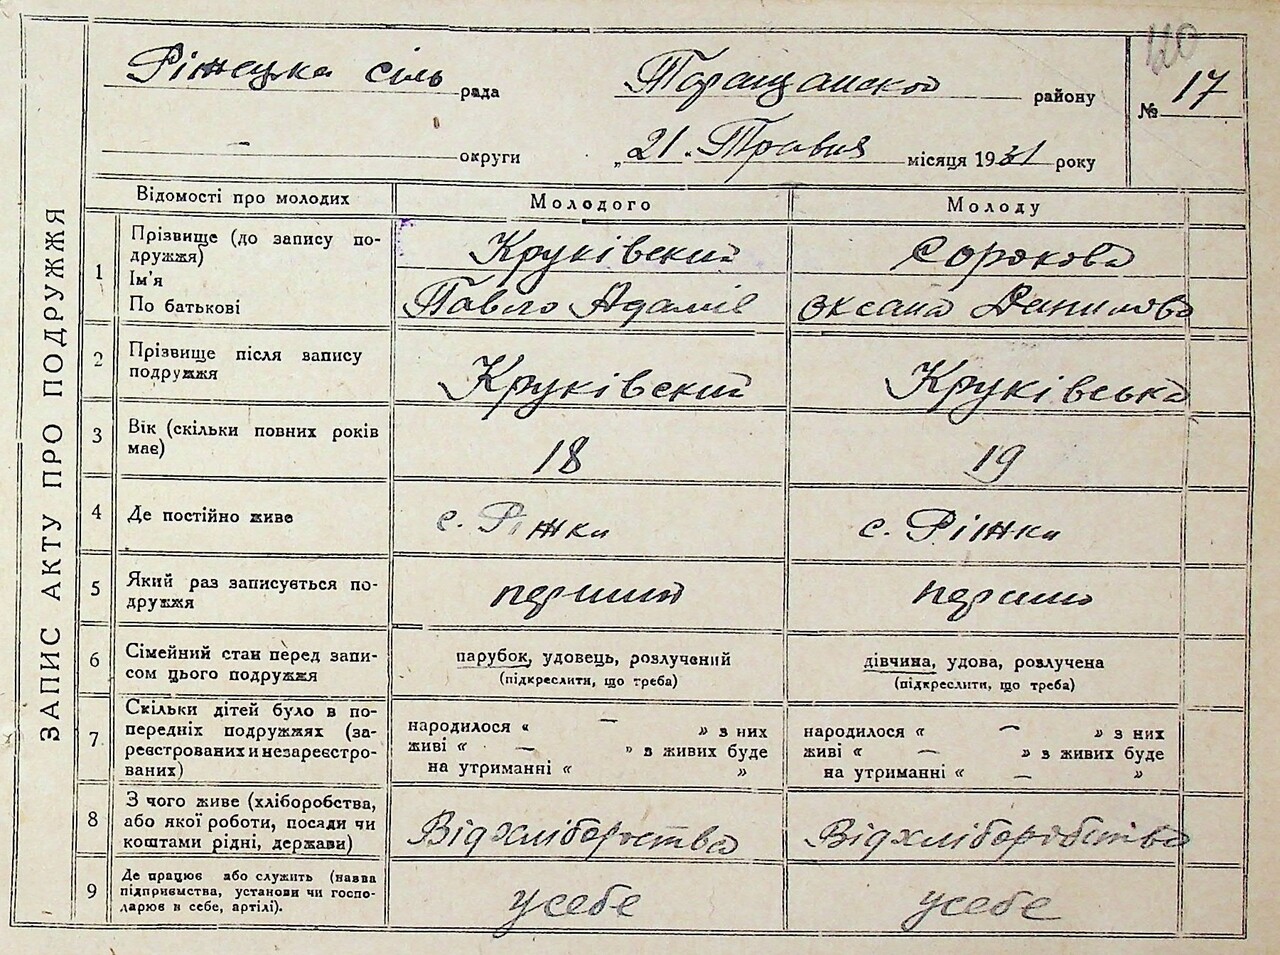 ЗАПИС АКТУ ПРО ПОДРУЖЖЯ
120
Ріжецка сіль рада Таращанской району № 17
— округи „21„ Травня місяця 1931 року
Відомості про молодих Молодого Молоду
1 Прізвище (до запису по-
дружжя) Круківский Сорокова
Ім'я
По батькові Павло Адамів Оксана Данилова
2 Прізвище після запису
подружжя Круківский Круківська
3 Вік (скільки повних років
має) 18 19
4 Де постійно живе с. Ріжки с. Ріжки
5 Який раз записується по-
дружжя перший перший
6 Сімейний стан перед запи-
сом цього подружжя парубок, удовець, розлучений дівчина, удова, розлучена
(підкреслити, що треба) (підкреслити, що треба)
7 Скільки дітей було в по-
передніх подружжях (за-
реєстрованих и незареєстро-
ваних) народилося « — » з них народилося « — » з них
живі « — » з живих буде живі « — » з живих буде
на утриманні « » на утриманні « — »
8 З чого живе (хліборобства,
або якої роботи, посади чи
коштами рідні, держави) Відхліборіства Відхліборобства
9 Де працює або служить (назва
підприємства, установи чи госпо-
дарює в себе, артілі). усебе усебе